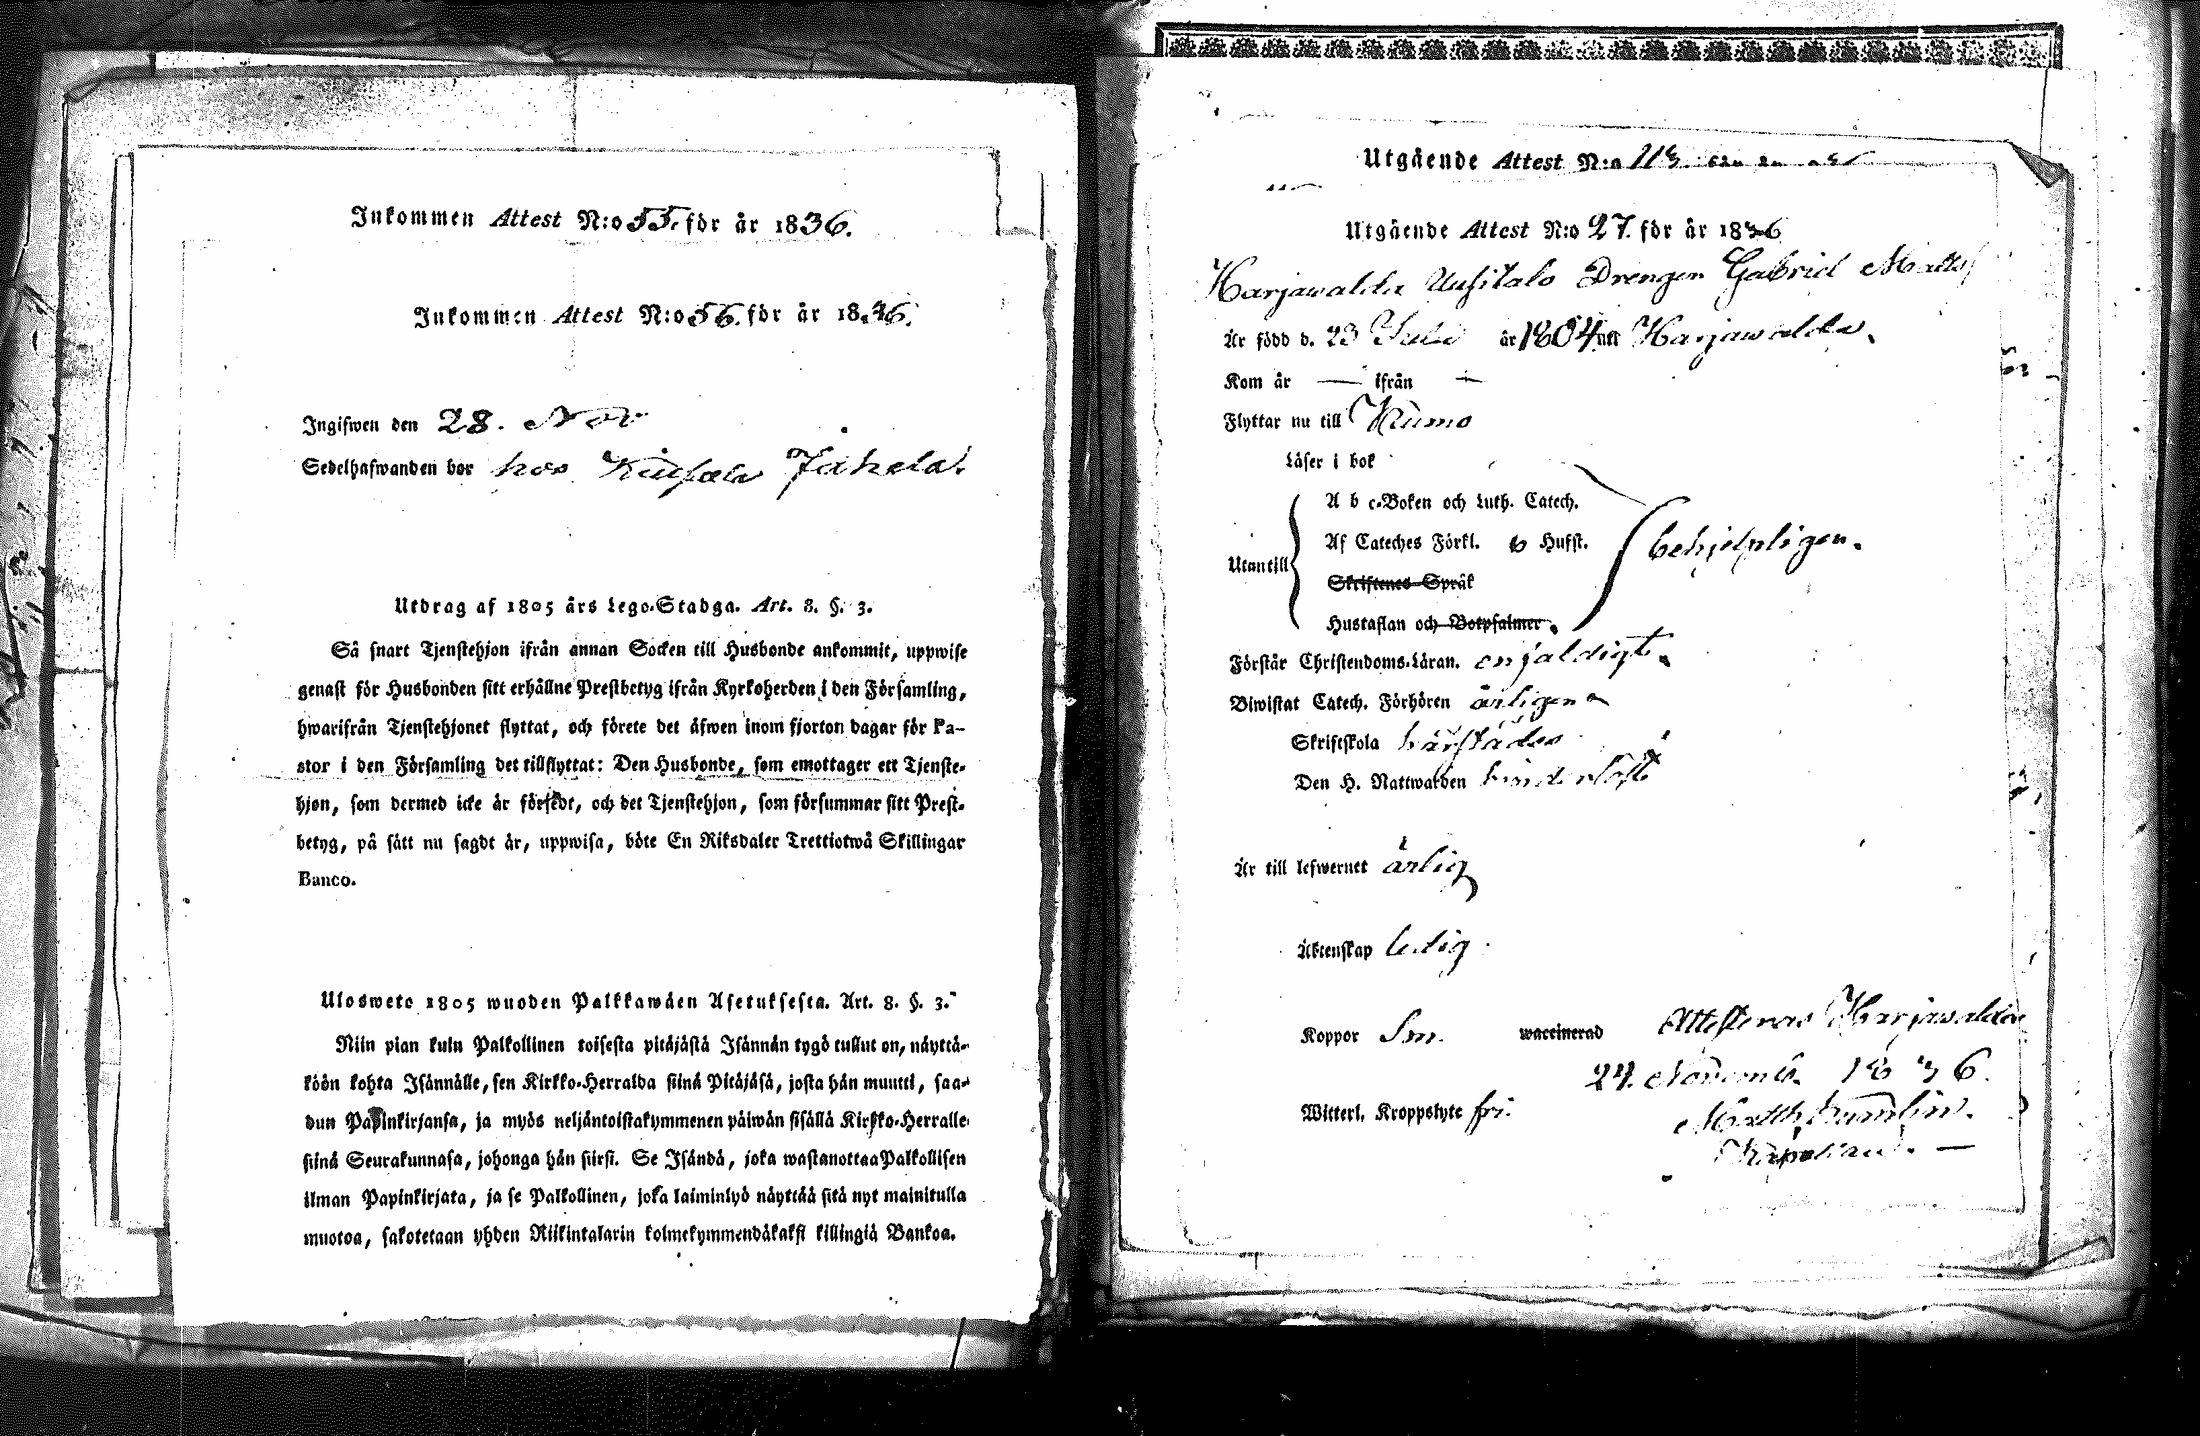 Inkommen Attest N:o 55. för år 1836.
Inkommen Attest N:o 56. för år 1836.
Ingifwen den 28. Nov
Sedelhafwanden bor hos
Utdrag af 1805 års Lego-Stadga. Art. 8. §. 3.
Så snart Tjenstehjon ifrån annan Socken till Husbonde ankommit, uppwise
genast för Husbonden sitt erhållne Prestbetyg ifrån Kyrkoherden i den Församling,
hwarifrån Tjenstehjonet flyttat, och förete det äfwen inom fjorton dagar för Pa-
stor i den Församling det tillflyttat: Den Husbonde, som emottager ett Tjenste-
hjon, som dermed icke är försedt, och det Tjenstehjon, som försummar sitt Prest-
betyg, på sätt nu sagdt är, uppwisa, böte En Riksdaler Trettiotwå Skillingar
Banco.
Ulosweto 1805 wuoden Palkkawäen Asetuksesta. Art. 8. §. 3.
Niin pian kuin Palkollinen toisesta pitäjästä Isännän tygö tullut on, näyttä-
köön kohta Isännälle, sen Kirkko-Herralda siinä Pitäjäsä, josta hän muutti, saa-
dun Papinkirjansa, ja myös neljäntoistakymmenen päiwän sisällä Kirkko-Herralle
siinä Seurakunnasa, johonga hän siirsi. Se Isändä, joka wastanottaa Palkollisen
ilman Papinkirjata, ja se Palkollinen, joka laiminlyö näyttää sitä nyt mainitulla
muotoa, sakotetaan yhden Riikintalarin kolmekymmendäkaksi killingiä Bankoa.
Utgående Attest N:o
Utgående Attest N:o 27. för år 1836
Harjawalda Uusitalo Drengen Gabriel Matts
Är född d. 23 Juli år 1804 uti Harjawalda.
Kom år — ifrån —
Flyttar nu till Kumo
Läser i bok
A b c-Boken och Luth. Catech.
Af Cateches Förkl. 6 Hufst.
behjelpligen.
Utantill
Skriftenes Språk
Hustaflan och Botpsalmer.
Förstår Christendoms-Läran. enfaldigt.
Biwistat Catech. Förhören årligen
Skriftskola härstädes
Den H. Nattwarden hinderlöst
Är till lefwernet ärlig
Äktenskap ledig
Koppor Sm. waccinerad Attesteras Harjawalda
24. Novemb. 1836.
Witterl. Kroppslyte fri.
Kapellan. —